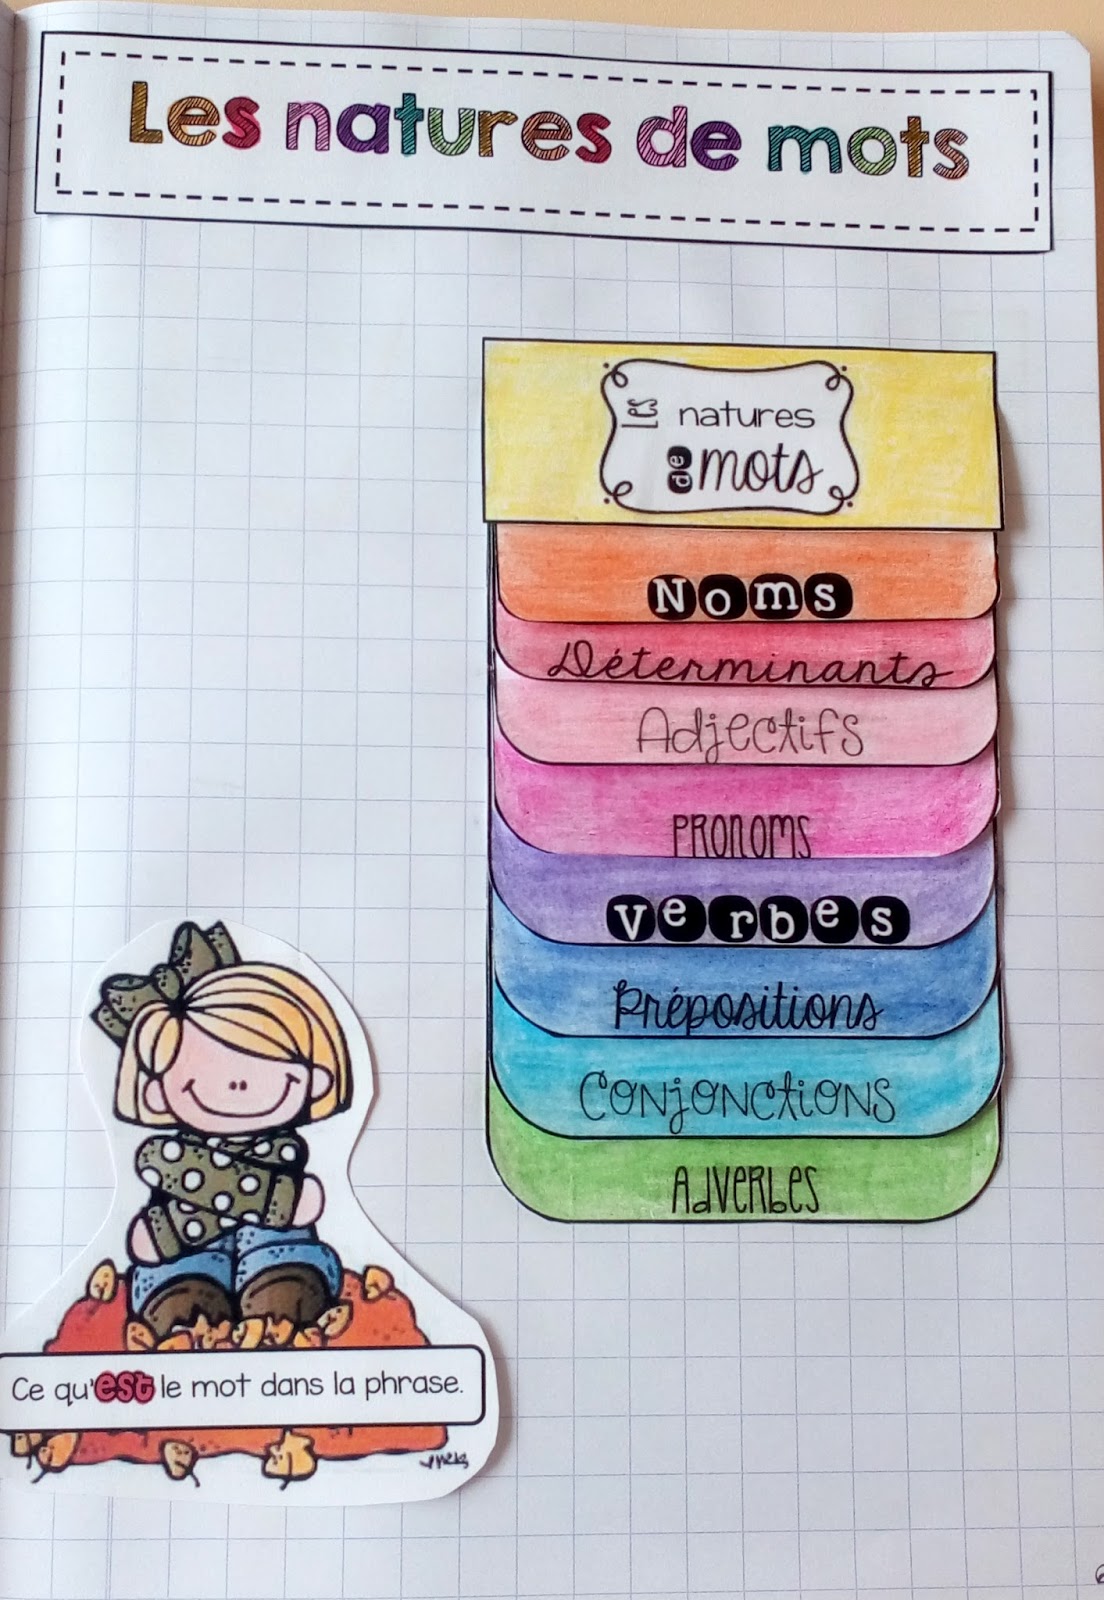 Les natures de mots
les natures
de mots
Noms
Déterminants
Adjectifs
Pronoms
Verbes
Prépositions
Conjonctions
Adverbes
Ce qu'est le mot dans la phrase.